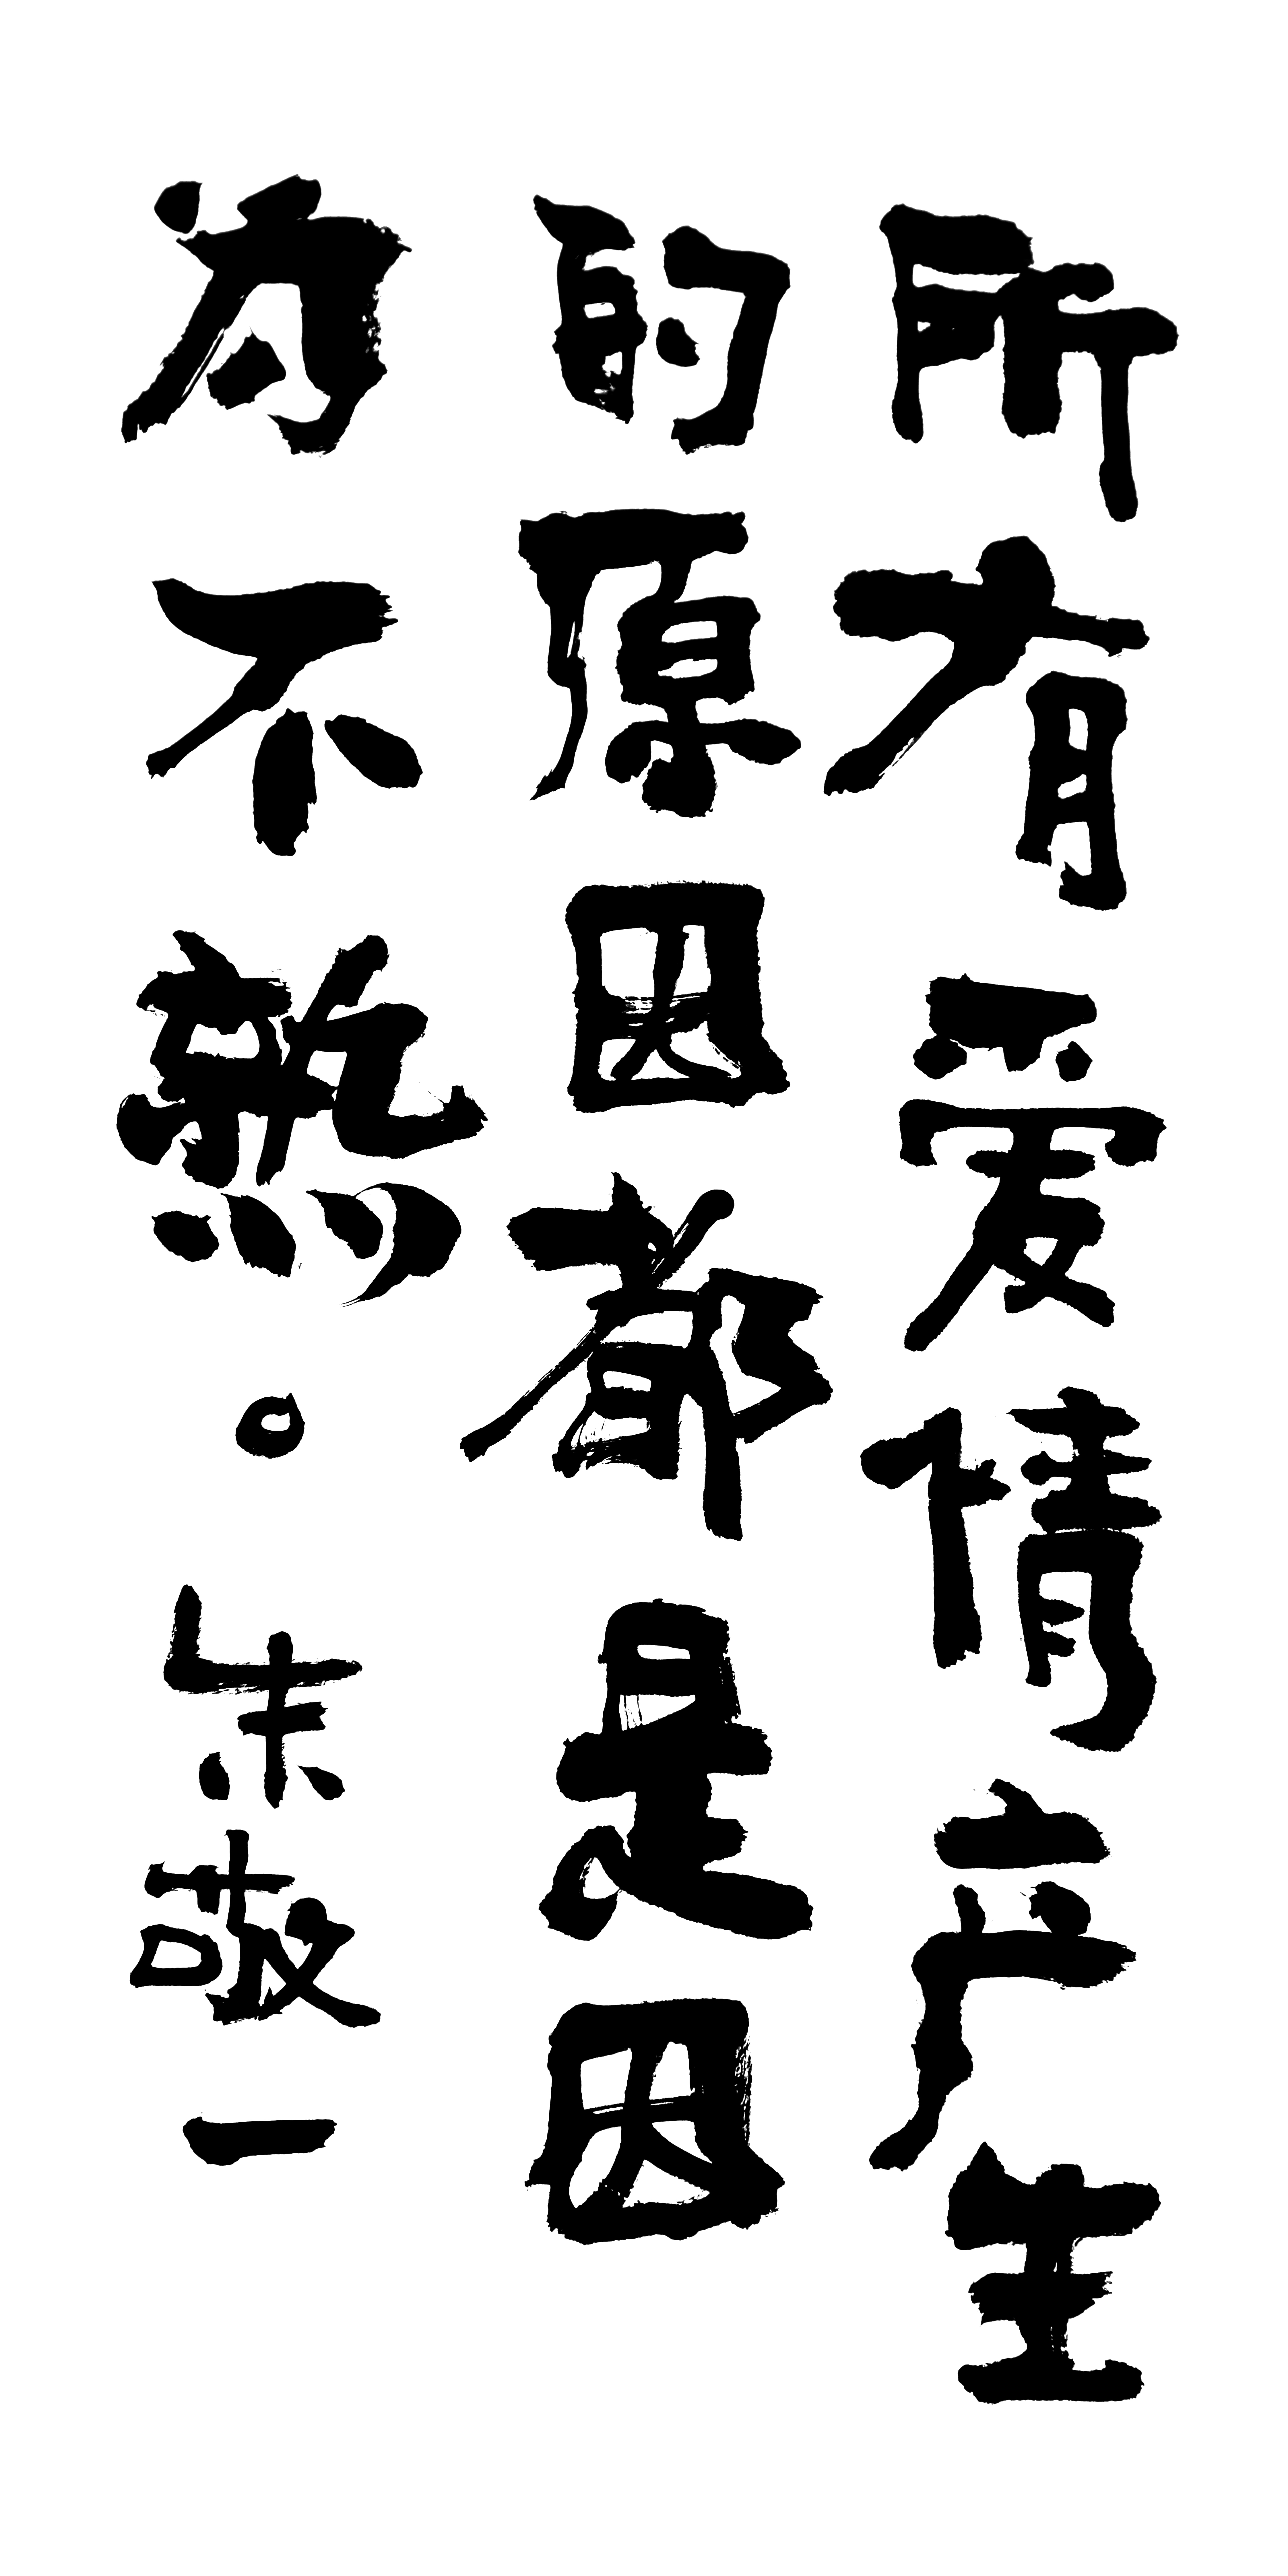 所有爱情产生
的原因都是因
为不熱。朱敬一